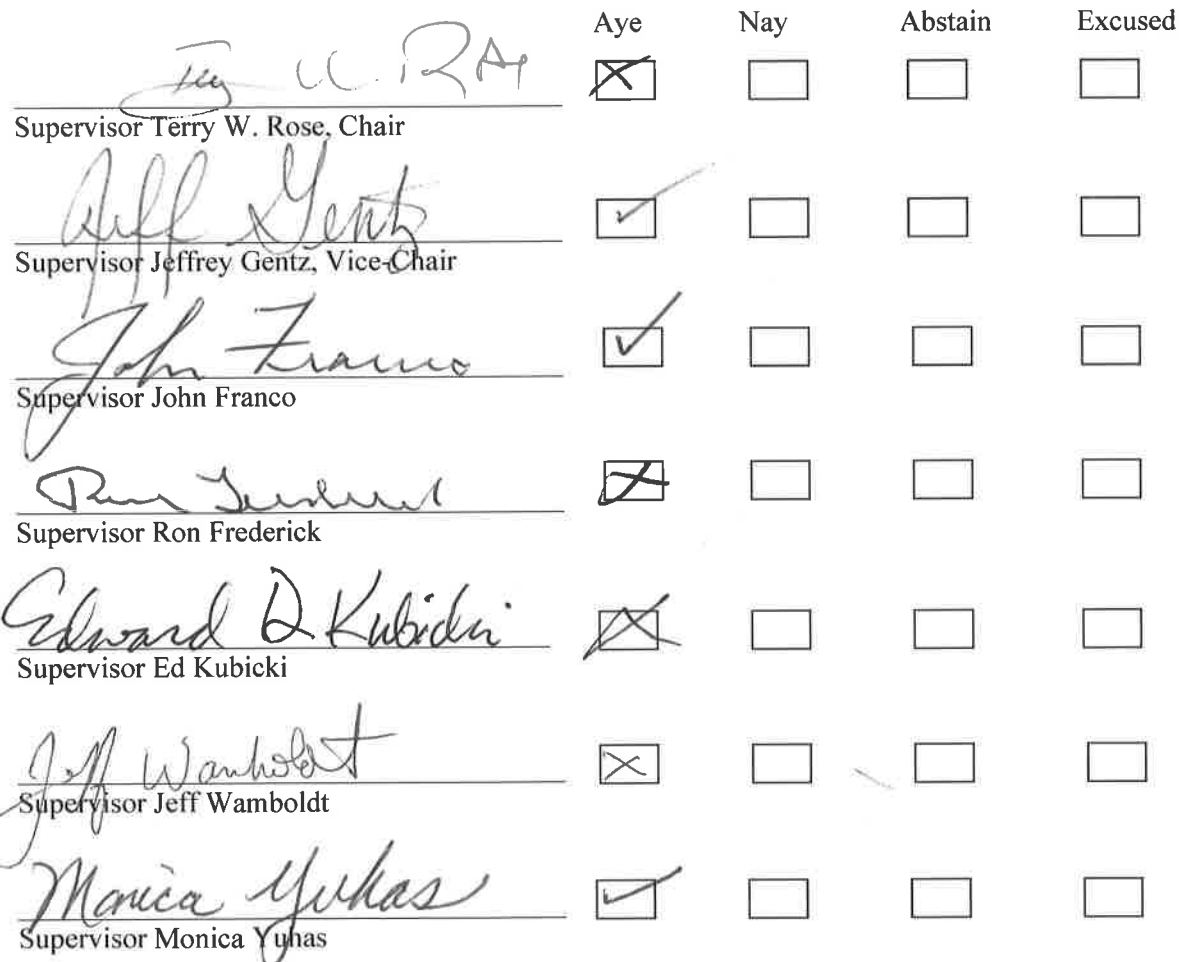 Aye Nay Abstain Excused
Supervisor Terry W. Rose, Chair
Jeff Gentz
Supervisor Jeffrey Gentz, Vice-Chair
John Franco
Supervisor John Franco
Supervisor Ron Frederick
Edward D Kubicki
Supervisor Ed Kubicki
Jeff Wamboldt
Supervisor Jeff Wamboldt
Monica Yuhas
Supervisor Monica Yuhas